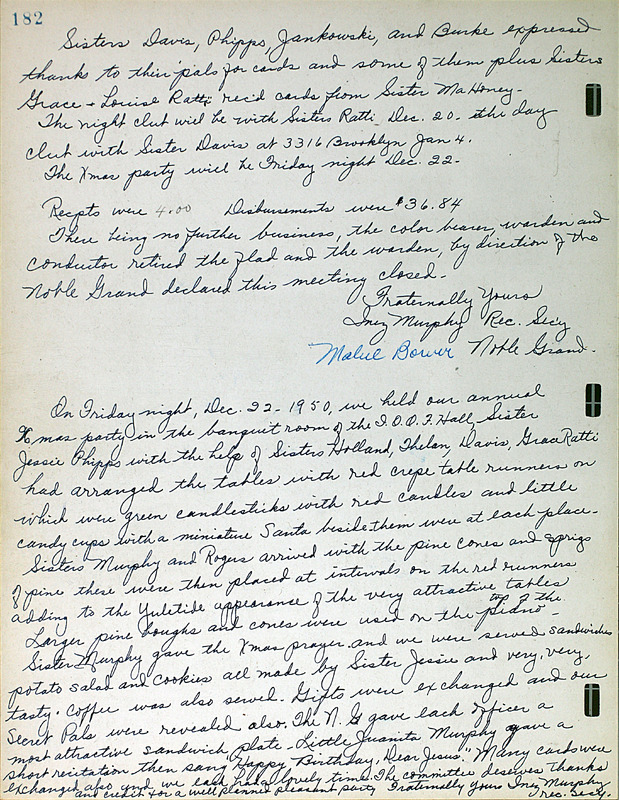 182
Sisters Davis, Phipps, Jankowski, and Burke expressed
thanks to their pals for cards and some of them plus Sisters
Grace + Louise Ratti rec'd cards from Sister MaHoney-
The night club will be with Sisters Ratti Dec. 20. & the day
club with Sister Davis at 3316 Brooklyn Jan 4.
The Xmas party will be Friday night Dec. 22-
Recpts were 4.00 Disbursements were $36.84
There being no further business, the color bearer, warden and
conductor retired the flad and the warden, by direction of the
Noble Grand declared this meeting closed-
Fraternally Yours
Inez Murphy Rec. Sec'y
Mabel Bower Noble Grand.
On Friday night, Dec. 22- 1950, we held our annual
Xmas party in the banquit room of the I.O.O.F. Hall, Sister
Jessie Phipps with the help of Sisters Holland, Thelan, Davis, Grace Ratti
had arranged the tables with red crepe table runners on
which were green candlesticks with red candles and little
candy cups with a miniature Santa beside them were at each place-
Sisters Murphy and Rogers arrived with the pine cones and sprigs
of pine there were then placed at intervals on the red runners
adding to the Yuletide appearance of the very attractive tables
Larger pine boughs and cones were used on the top of the piano-
Sister Murphy gave the Xmas prayer and we were served sandwiches
potato salad and cookies all made by Sister Jessie and very, very
tasty. Coffee was also served. Gifts were exchanged and our
Secret Pals were revealed also. The N. G gave each officer a
most attractive sandwich plate- Little Juanita Murphy gave a
short recitation then sang "Happy Birthday, Dear Jesus." Many cards were
exchanged also and we each had a lovely time. The committee deserves thanks
and credit for a well planned pleasant party Fraternally yours Inez Murphy
rec. Secty.